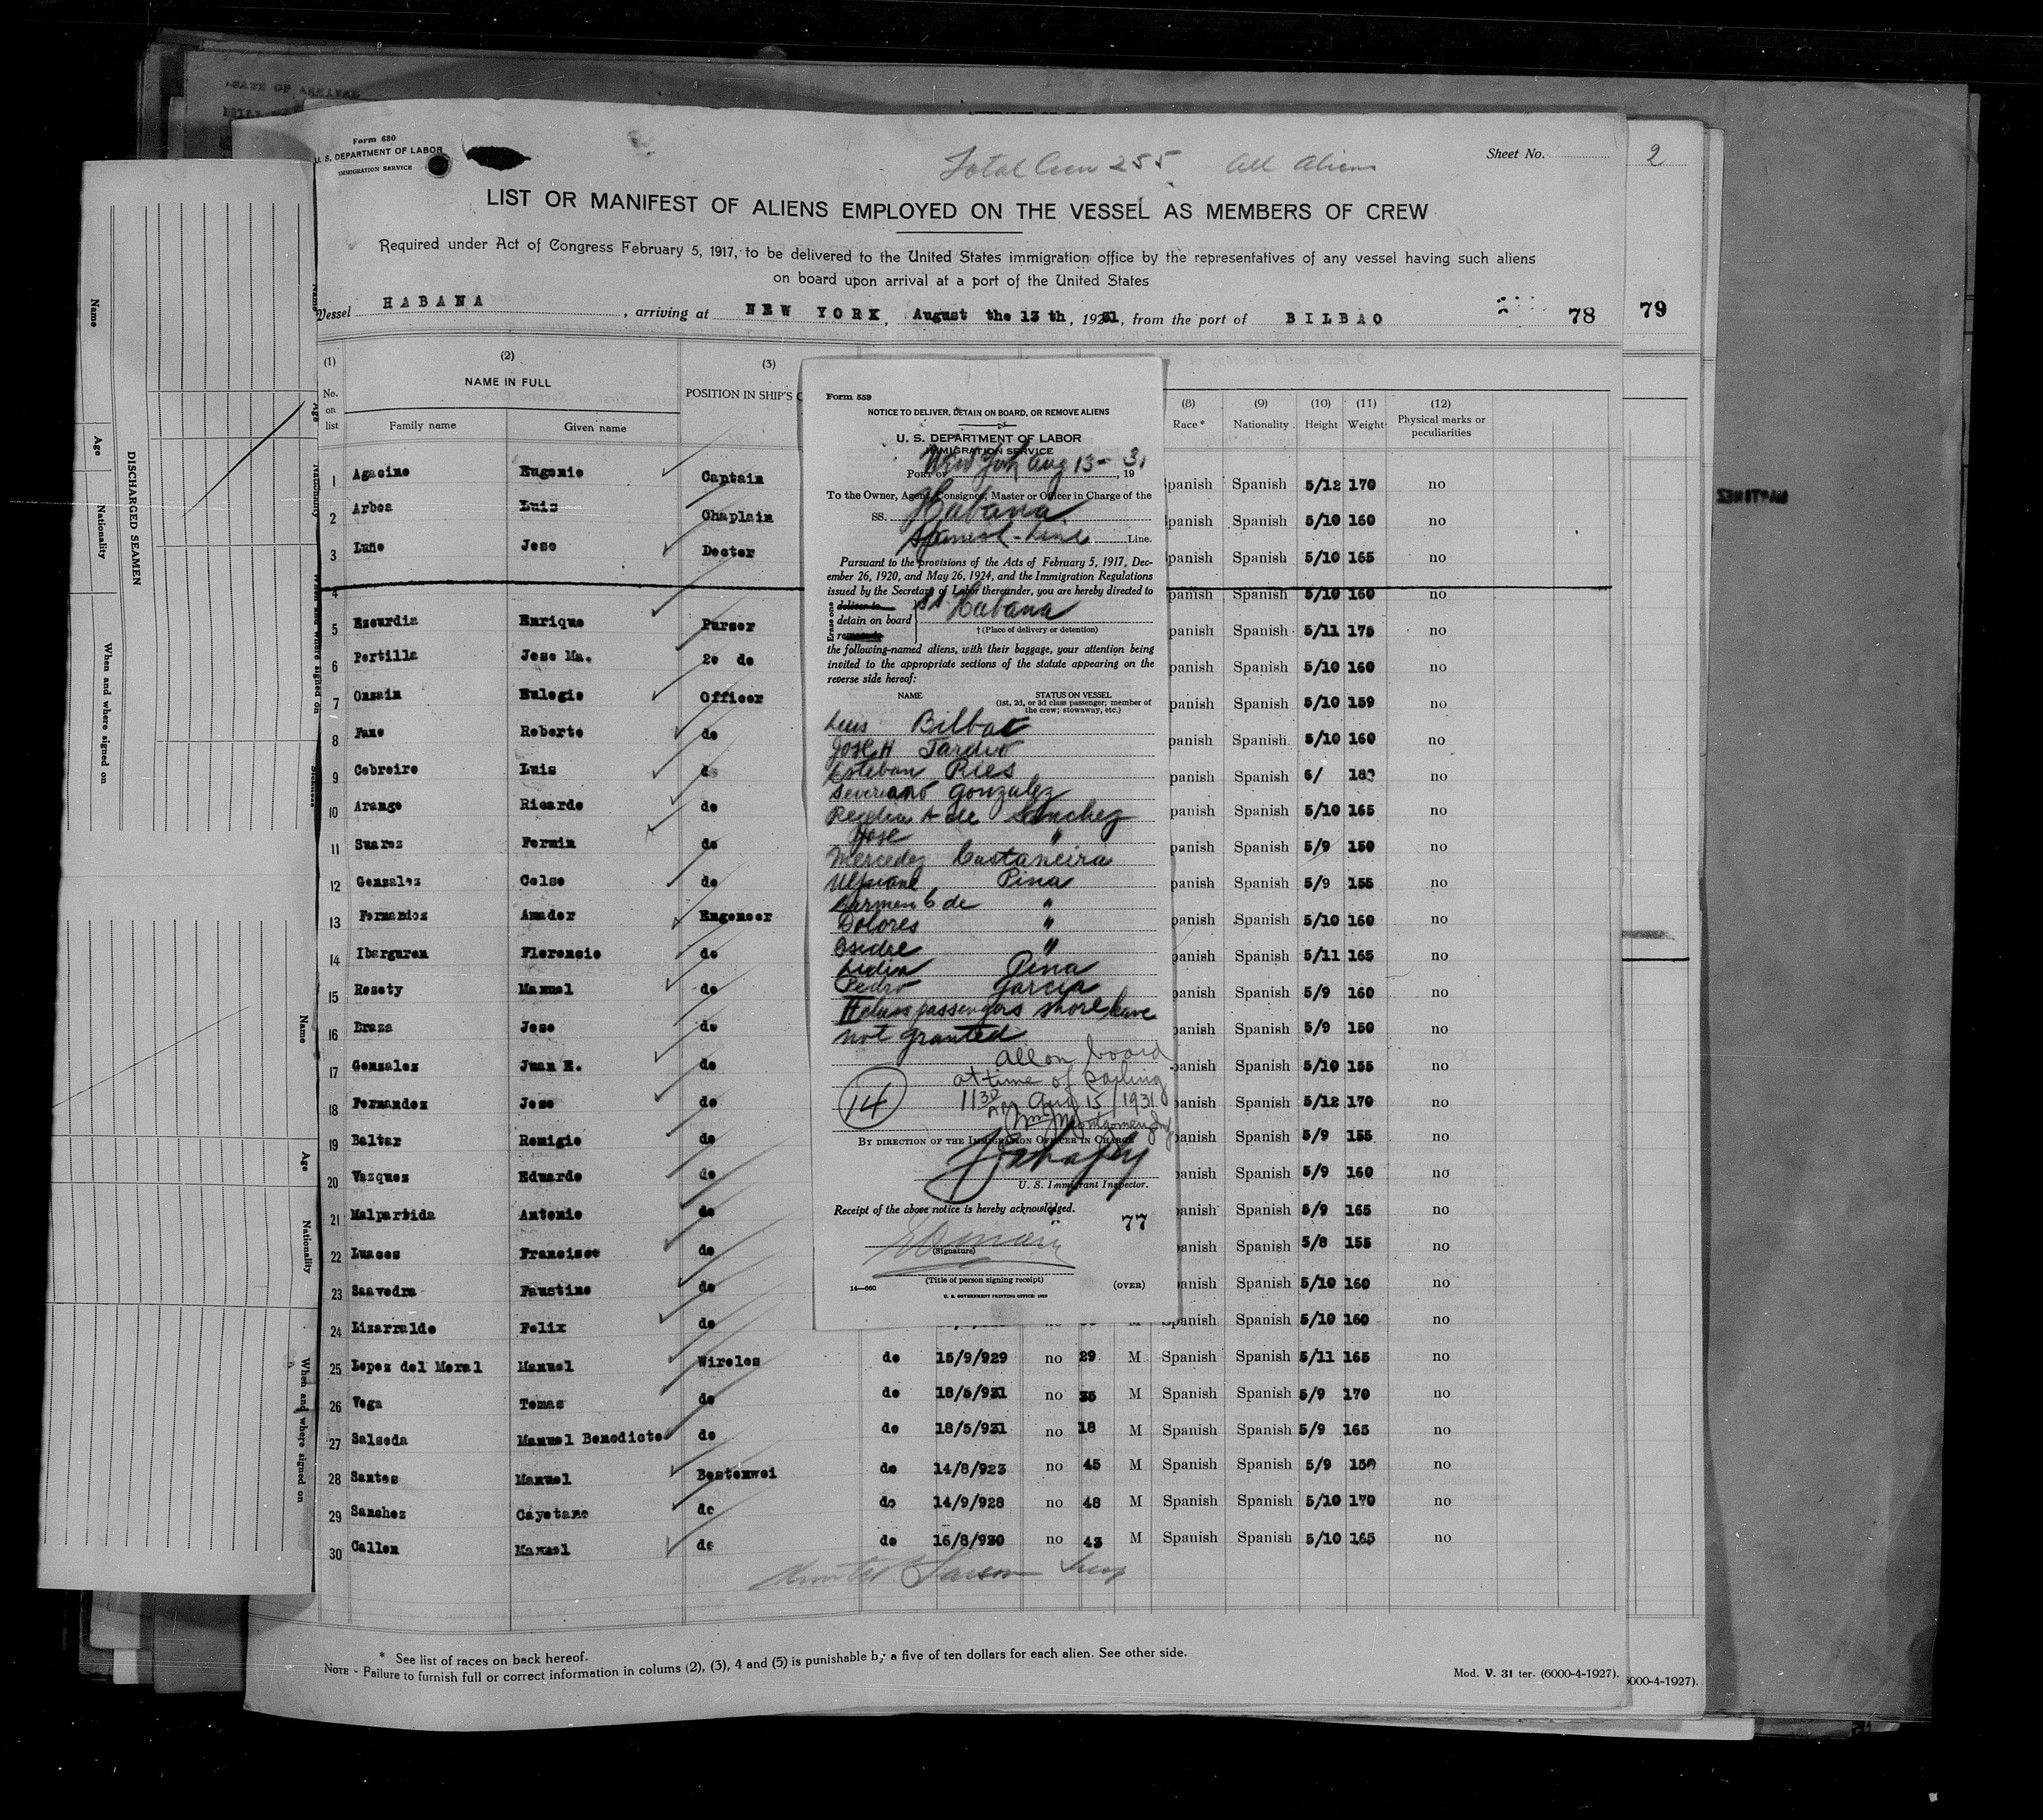 Form 680
U. S. DEPARTMENT OF LABOR
IMMIGRATION SERVICE
Total Crew 255 All Aliens
Sheet No.
2
LIST OR MANIFEST OF ALIENS EMPLOYED ON THE VESSEL AS MEMBERS OF CREW
Required under Act of Congress February 5, 1917, to be delivered to the United States immigration office by the representatives of any vessel having such aliens
on board upon arrival at a port of the United States
Vessel HABANA, arriving at NEW YORK, August the 13 th, 1931, from the port of BILBAO
78
79
(1) (2) (3) (8) (9) (10) (11) (12)
No. on list NAME IN FULL POSITION IN SHIP'S C Race* Nationality Height Weight Physical marks or peculiarities
Family name Given name
1 Agacino Eugenio Captain panish Spanish 5/12 170 no
2 Arbea Luis Chaplain panish Spanish 5/10 160 no
3 Luño Jose Doctor panish Spanish 5/10 165 no
4 panish Spanish 5/10 160 no
5 Ezcurdia Enrique Purser panish Spanish 5/11 175 no
6 Portilla Jose Ma. 2o do panish Spanish 5/10 160 no
7 Onzain Eulogio Officer panish Spanish 5/10 159 no
8 Fano Roberto do panish Spanish 5/10 160 no
9 Cobreiro Luis do panish Spanish 6/ 180 no
10 Arango Ricardo do panish Spanish 5/10 165 no
11 Suarez Fermin do panish Spanish 5/9 150 no
12 Gonzalez Celso do panish Spanish 5/9 155 no
13 Fernandez Amador Engeneer panish Spanish 5/10 160 no
14 Ibarguren Florencio do panish Spanish 5/11 165 no
15 Rosety Manuel do panish Spanish 5/9 160 no
16 Eraza Jose do panish Spanish 5/9 150 no
17 Gonzalez Juan E. do panish Spanish 5/10 155 no
18 Fernandez Jose do panish Spanish 5/12 170 no
19 Baltar Remigio do panish Spanish 5/9 155 no
20 Vazquez Eduardo do panish Spanish 5/9 160 no
21 Malpartida Antonio do panish Spanish 5/9 165 no
22 Luaces Francisco do panish Spanish 5/8 155 no
23 Saavedra Faustino do panish Spanish 5/10 160 no
24 Lizarralde Felix do panish Spanish 5/10 160 no
25 Lopez del Moral Manuel Wireles do 15/9/929 no 29 M Spanish Spanish 5/11 165 no
26 Vega Tomas do do 18/5/931 no 35 M Spanish Spanish 5/9 170 no
27 Salseda Manuel Benedicto do do 18/5/931 no 18 M Spanish Spanish 5/9 165 no
28 Santos Manuel Bostonwei do 14/8/923 no 45 M Spanish Spanish 5/9 150 no
29 Sanchez Cayetano do do 14/9/928 no 48 M Spanish Spanish 5/10 170 no
30 Callen Manuel do do 16/8/930 no 43 M Spanish Spanish 5/10 165 no
* See list of races on back hereof.
NOTE - Failure to furnish full or correct information in colums (2), (3), 4 and (5) is punishable by a five of ten dollars for each alien. See other side.
Mod. V. 31 ter. (6000-4-1927).
6000-4-1927).
Form 559
NOTICE TO DELIVER, DETAIN ON BOARD, OR REMOVE ALIENS
U. S. DEPARTMENT OF LABOR
IMMIGRATION SERVICE
Port of New York Aug 13 - , 1931
To the Owner, Agent, Consignee, Master or Officer in Charge of the
SS. Habana
Spanish - Line Line.
Pursuant to the provisions of the Acts of February 5, 1917, Dec-
ember 26, 1920, and May 26, 1924, and the Immigration Regulations
issued by the Secretary of Labor thereunder, you are hereby directed to
Erase one
deliver to
detain on board
remove to
SS Habana
† (Place of delivery or detention)
the following-named aliens, with their baggage, your attention being
invited to the appropriate sections of the statute appearing on the
reverse side hereof:
NAME STATUS ON VESSEL
(1st, 2d, or 3d class passenger; member of
the crew; stowaway, etc.)
Luis Bilbao
Jose H Tardio
Esteban Ries
Severiano Gonzalez
A de Sanchez
Jose "
Mercedez Castaneira
Ulpiano Pina
Carmen C de "
Dolores "
Isidre "
Lidia Pina
Pedro Garcia
II class passengers shore leave
not granted
All on board
at time of sailing
14
11 30 AM Aug 15/1931
Wm Montgomery Insp
BY DIRECTION OF THE IMMIGRATION OFFICER IN CHARGE
U. S. Immigrant Inspector.
Receipt of the above notice is hereby acknowledged.
77
(Signature)
(Title of person signing receipt)
14—660
(OVER)
U. S. GOVERNMENT PRINTING OFFICE: 1929
DISCHARGED SEAMEN
Name
Age
Nationality
When and where signed on
Name
Age
Nationality
When and where signed on
Sickness
Name
Age
Nationality
When and where signed on
DATE OF ARRIVAL
MARTINEZ